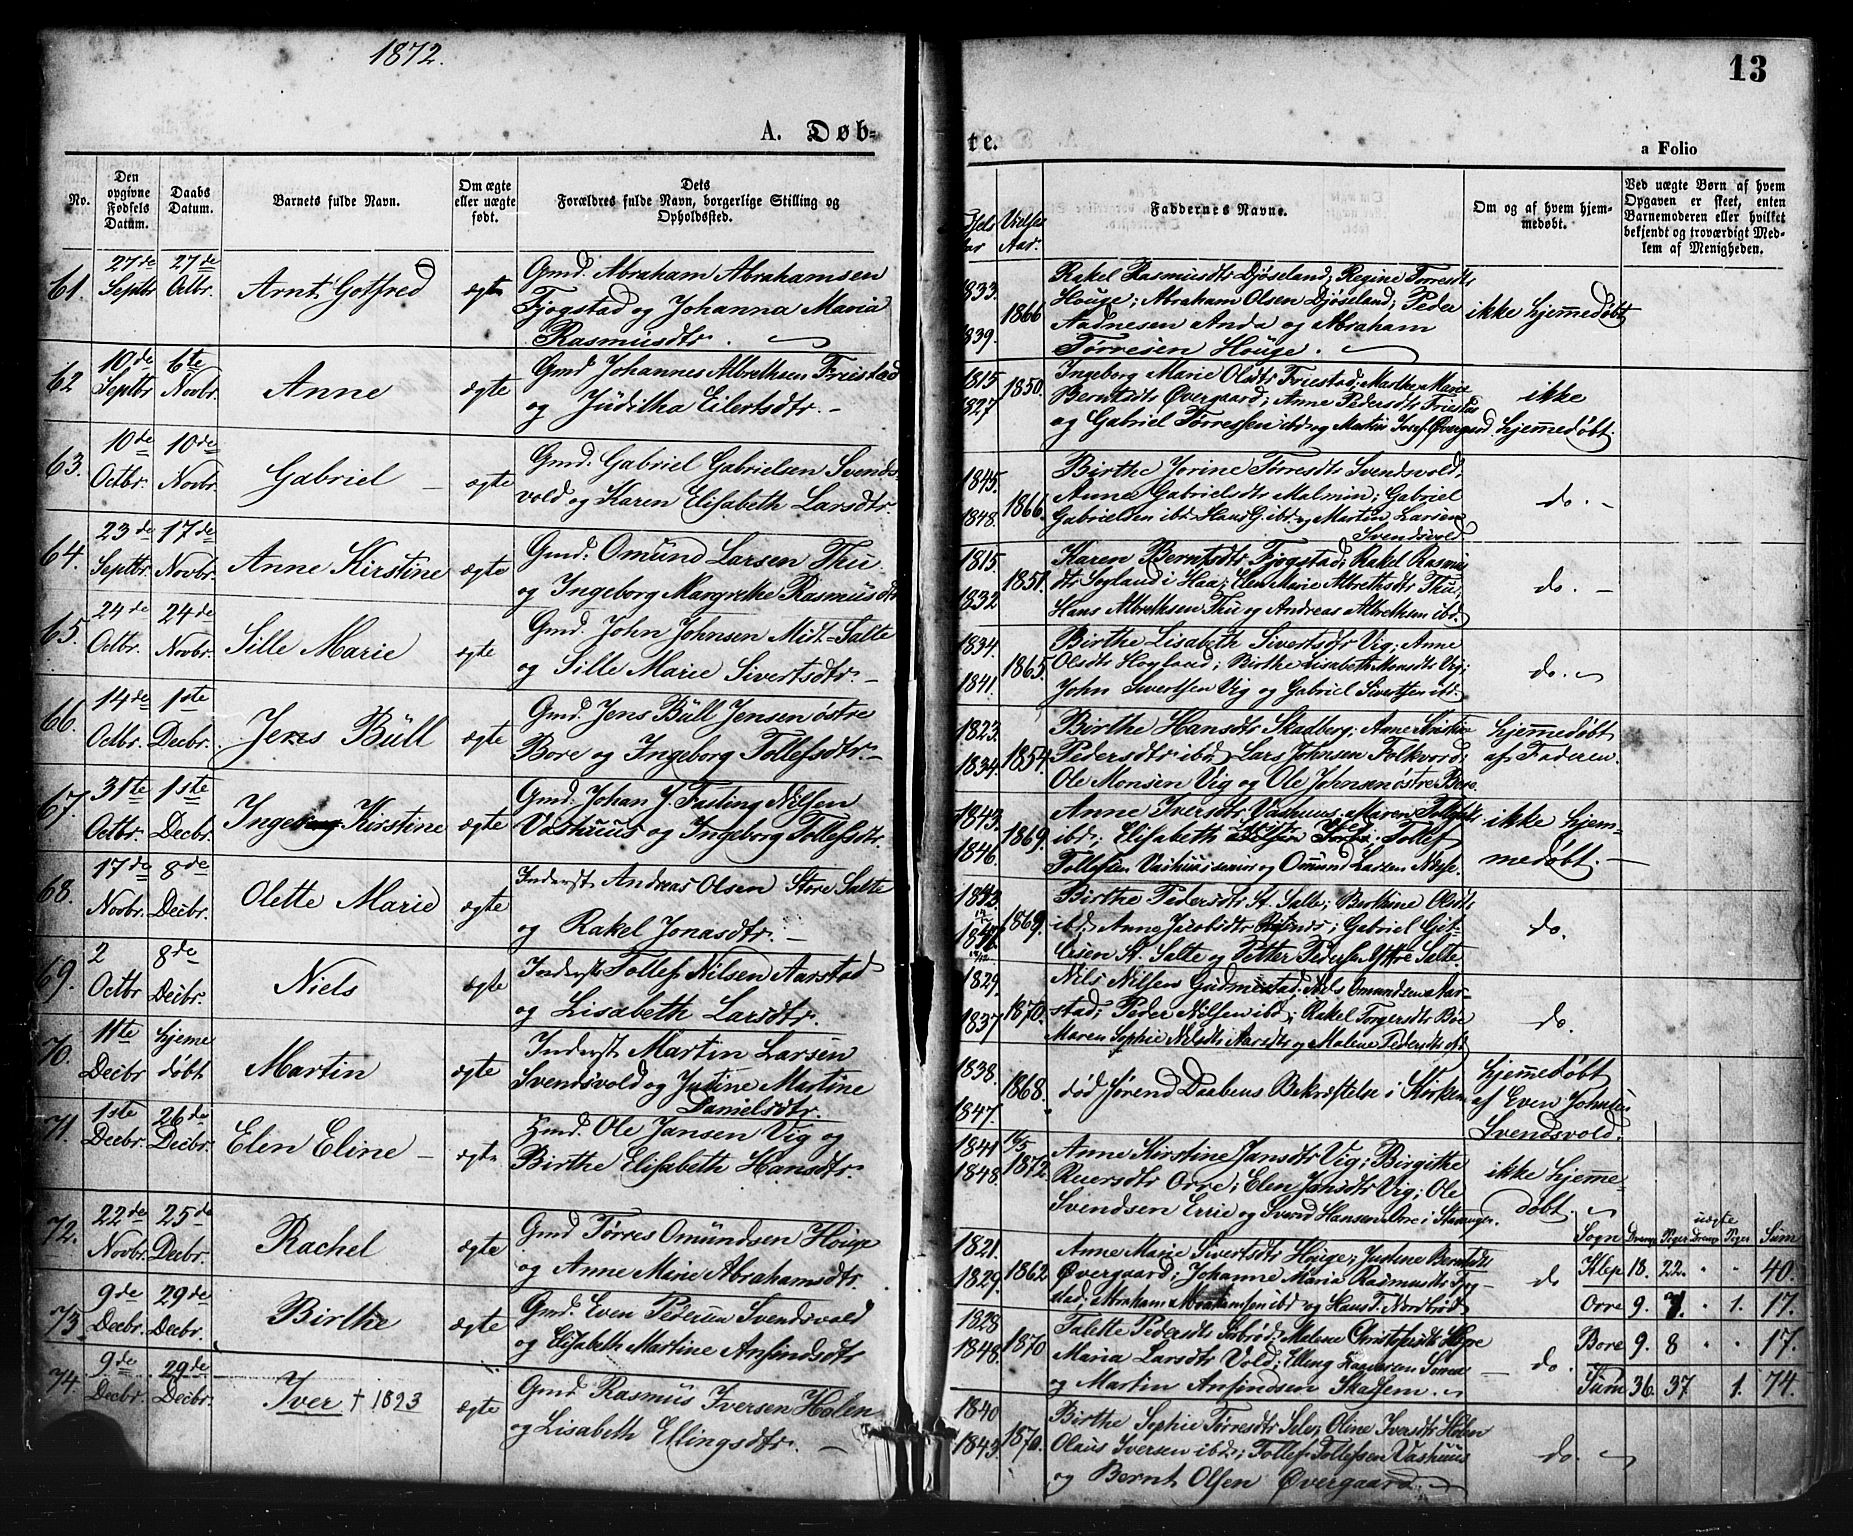 1872.
13
A. Døb-
te.
a Folio
No.
Den opgivne Fødsels Datum.
Daabs Datum.
Barnets fulde Navn.
Om ægte eller uægte født.
Dets Forældres fulde Navn, borgerlige Stilling og Opholdssted.
Faddernes Navne.
Om og af hvem hjemmedøbt.
Ved uægte Børn af hvem Opgaven er skeet, enten Barnemoderen eller hvilket bekjendt og troværdigt Medlem af Menigheden.
61. 27de Septbr. 27de Octbr. Arnt Gotfred ægte
Gmd. Abraham Abrahamsen
Fjogstad og Johanna Maria
Rasmusdtr.
1833. 1839. 1866
Rakel Rasmusdtr Djøseland; Regine Torresdtr
Houge; Abraham Olsen Djøseland; Peder
Aadnesen Anda og Abraham
Tørresen Houge.
ikke hjemmedøbt
62 10de Septbr. 6te Novbr. Anne ægte
Gmd Johannes Albrethsen Friestad
og Juditha Eilertsdtr.
1815 1827 1850.
Ingeborg Marie Olsdtr Friestad; Marthe Marie
Berntsdtr Øvergaard; Anne Pedersdtr Friestad
og Gabriel Tørressen ibd og Martin Josef. Øvergaard
ikke hjemmedøbt.
63. 10de Octbr. 10de Novbr. Gabriel ægte
Gmd. Gabriel Gabrielsen Svends-
vold og Karen Elisabeth Larsdtr.
1845. 1848. 1866.
Birthe Jorine Tørresdtr Svendsvold;
Anne Gabrielsdtr Malmin; Gabriel
Gabrielsen ibd. Hans G. ibd og Martin Larsen
Svendsvold.
do.
64. 23de Septbr. 17de Novbr. Anne Kirstine ægte
Gmd: Omund Larsen Thu
og Ingeborg Margrethe Rasmusdtr
1815 1832 1851.
Karen Berntsdtr Fjogstad; Rakel Rasmus
dtr Sogland i Haa; Elen Marie Albrethsdtr Thu;
Hans Albrethsen Thu og Andreas Albrethsen ibd.
do.
65. 24de Octbr. 24de Novbr. Sille Marie ægte
Gmd. John Johnsen Midt-Salte
og Sille Marie Sivertsdtr.
1834. 1841. 1865.
Birthe Lisabeth Sivertsdtr Vig; Anne
Olsdtr Hogland; Birthe Lisabeth Monsdtr Vig;
John Sivertsen Vig og Gabriel Sivertsen ibd.
do.
66. 14de Octbr. 1ste Decbr. Jens Büll ægte
Gmd. Jens Büll Jensen østre
Bore og Ingeborg Tollefsdtr.
1823. 1834. 1854.
Birthe Hansdtr Skadberg; Anne Kirstine
Pedersdtr ibd. Lars Johnsen Folkvord;
Ole Monsen Vig og Ole Johnsen østre Bore.
hjemmedøbt af Faderen.
67. 31te Octbr. 1ste Decbr. Ingeborg Kirstine ægte
Gmd. Johan J. Fasting Nilsen
Vashuus og Ingeborg Tollefsdtr.
1843. 1846. 1869.
Anne Iversdtr Vashuus; Maren Tollefsdtr
ibd; Elisabeth Tollef
Tollefsen Vashuus senior og Omund Larsen Nilse.
ikke hjemmedøbt.
68. 17de Novbr. 8de Decbr. Olette Marie ægte
Inderst Andreas Olsen Store Salte
og Rakel Jonasdtr.
1843. 1869.
Birthe Pedersdtr St. Salte; Berthine Olsdtr
ibd; Anne Jacobsdtr Gabriel Git-
lesen St. Salte og Petter Pedersen Ytre Salte.
do.
69. 2 Octbr 8de Decbr. Niels ægte
Inderst Tollef Nilsen Aarstad
og Lisabeth Larsdtr.
1829. 1837 1870.
Nils Nilsen Gudmestad; Nils Omundsen Aar-
stad; Peder Nilsen ibd; Rakel Torgersdtr Bøe
Maren Sophie Nilsdtr Aarsdtr og Malene Pedersdtr ibd
do.
70. 11te Decbr hjemedøbt Martin ægte
Inderst Martin Larsen
Svendsvold og Justine Martine
Danielsdtr.
1838. 1847. 1868.
død førend Daabens Bekræftelse i Kirken
hjemmedøbt af Even Johnsen Svendsvold.
71. 1ste Decbr. 26de Decbr. Elen Eline ægte
Hmd. Ole Jansen Vig og
Birthe Elisabeth Hansdtr.
1841 1848. 16/5 1872.
Anne Kirstine Jansdtr Vig; Birgithe
Reiersdtr Orre; Elen Jansdtr Vig; Ole
Svendsen Errie og Svend Hansen Orre i Stavanger.
ikke hjemmedøbt.
72. 22de Novbr. 25de Decbr. Rachel ægte
Gmd Tørres Omundsen Houge
og Anne Marie Abrahamsdtr.
1821. 1829. 1862
Anne Marie Sivertsdtr Houge; Justine Berntsdtr
Øvergaard; Johanne Maria Rasmusdtr Fjog-
stad; Abraham Abrahamsen ibd og Hans T. Nordbrød
do
73. 9de Decbr. 29de Decbr. Birthe ægte
Gmd. Even Pedersen Svendsvold
og Elisabeth Martine Anfindsdtr
1828 1848. 1870
Talette Pedersdtr Malene Christofersdtr
Maria Larsdtr Vold; Elling
og Martin Anfindsen Skadsem.
do.
74. 9de Decbr. 29de Decbr. Iver † 1893 ægte
Gmd Rasmus Iversen Holen
og Lisabeth Ellingsdtr.
1840 1843. 1870.
Birthe Sophie Tørresdtr Sele; Oline Iversdtr Holen
Olaus Iversen ibd; Tollef Tollefsen Vashuus
og Bernt Olsen Øvergaard.
do.
uægte
Sogn Drenge Piger Drenge Piger Sum
Klep 18. 22. " " 40.
Orre 9. 7. " 1. 17.
Bore 9. 8 " " 17.
Sum 36. 37. 1. 74.